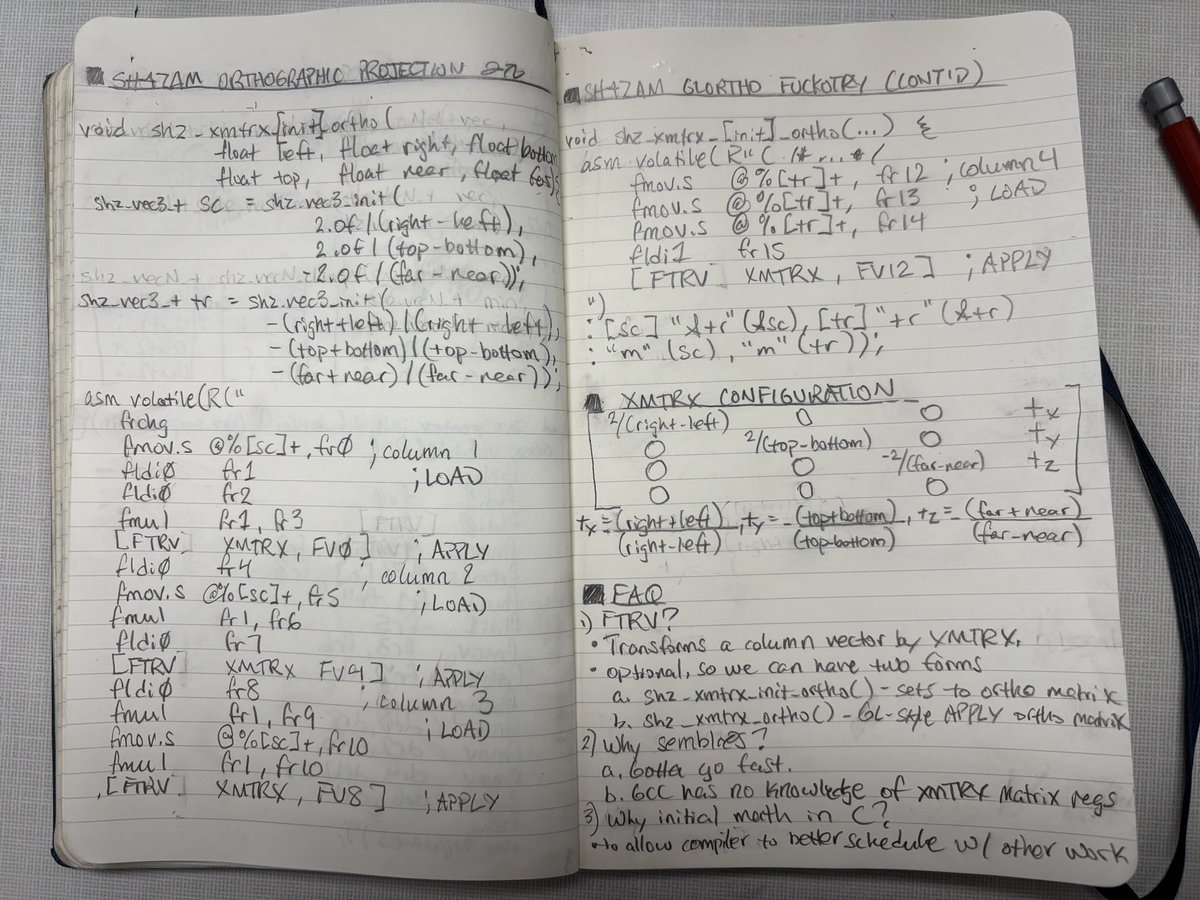 SH4ZAM ORTHOGRAPHIC PROJECTION
void shz_xmtrx_[init]_ortho(
float left, float right, float bottom
float top, float near, float far){
shz_vec3_t sc = shz_vec3_init(
2.0f/(right-left),
2.0f/(top-bottom),
-2.0f/(far-near));
shz_vec3_t tr = shz_vec3_init(
-(right+left)/(right-left),
-(top+bottom)/(top-bottom),
-(far+near)/(far-near));
asm volatile(R("
frchg
fmov.s @%[sc]+, fr0 ; column 1
fldi0 fr1 ; LOAD
fldi0 fr2
fmul fr1, fr3
[FTRV XMTRX, FV0] ; APPLY
fldi0 fr4 ; column 2
fmov.s @%[sc]+, fr5 ; LOAD
fmul fr1, fr6
fldi0 fr7
[FTRV XMTRX FV4] ; APPLY
fldi0 fr8 ; column 3
fmul fr1, fr9 ; LOAD
fmov.s @%[sc]+, fr10
fmul fr1, fr10
[FTRV XMTRX, FV8] ; APPLY
SH4ZAM GLORTHO FUCKOTRY (CONT'D)
void shz_xmtrx_[init]_ortho(...) {
asm volatile(R"( /* ... */
fmov.s @%[tr]+, fr12 ; column 4
fmov.s @%[tr]+, fr13 ; LOAD
fmov.s @%[tr]+, fr14
fldi1 fr15
[FTRV XMTRX, FV12] ; APPLY
")
: [sc] "&+r" (&sc), [tr] "+r" (&tr)
: "m" (sc), "m" (tr));
XMTRX CONFIGURATION
2/(right-left) 0 0 tx
0 2/(top-bottom) 0 ty
0 0 -2/(far-near) tz
0 0 0
tx = -(right+left)/(right-left), ty = -(top+bottom)/(top-bottom), tz = -(far+near)/(far-near)
FAQ
1) FTRV?
• Transforms a column vector by XMTRX.
• optional, so we can have two forms
a. shz_xmtrx_init_ortho() - sets to ortho matrix
b. shz_xmtrx_ortho() - GL-style APPLY ortho matrix
2) Why semblies?
a. Gotta go fast.
b. GCC has no knowledge of XMTRX matrix regs
3) Why initial math in C?
• to allow compiler to better schedule w/ other work